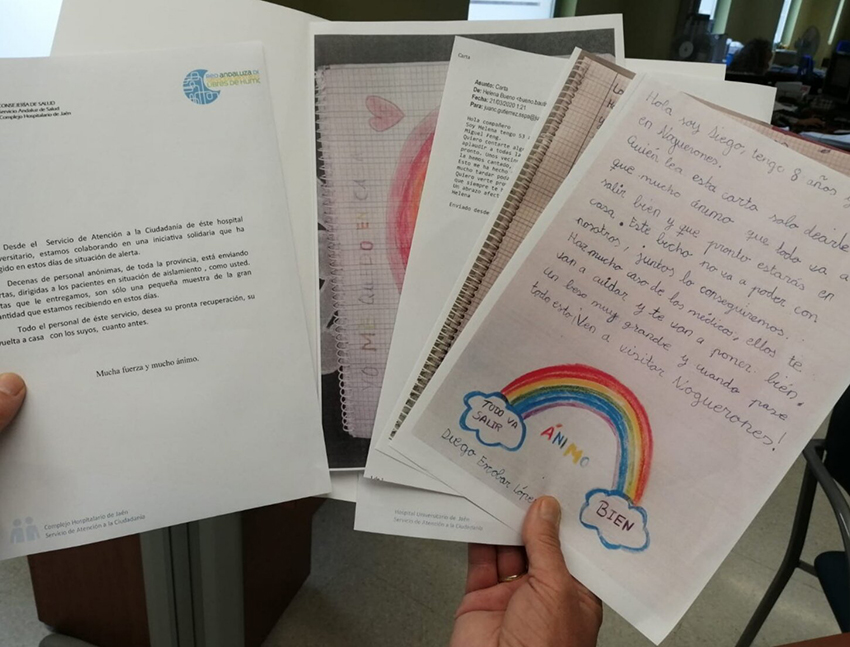 CONSEJERIA DE SALUD
Servicio Andaluz de Salud
Complejo Hospitalario de Jaén
RED ANDALUZA DE
LIBRES DE HUMO
Desde el Servicio de Atención a la Ciudadanía de éste hospital
estamos colaborando en una iniciativa solidaria que ha
en estos días de situación de alerta.
Decenas de personal anónimas, de toda la provincia, está enviando
dirigidas a los pacientes en situación de aislamiento , como usted.
que le entregamos, son sólo una pequeña muestra de la gran
que estamos recibiendo en estos días.
Todo el personal de éste servicio, desea su pronta recuperación, su
a casa con los suyos, cuanto antes.
Mucha fuerza y mucho ánimo.
Complejo Hospitalario de Jaén
Servicio de Atención a la Ciudadanía
YO ME QUEDO EN CA
Carta
Asunto: Carta
De: Helena Bueno
Fecha: 21/03/2020 1:21
Para:
Hola compañero
Soy Helena tengo 53
Miguel Feng.
Quiero contarte
a todas
pronto. Unos
la hemos cantado,
Esto me ha hecho
mucho tardar
Quiero verte
que siempre te
Un abrazo
Helena
Enviado desde
Hospital Universitario de Jaén
Servicio de Atención a la Ciudadanía
Hola soy Diego, tengo 8 años y
en Noguerones.
Quien lea esta carta solo decirle
que mucho ánimo que todo va a
salir bien y que pronto estarás en
casa. Este bicho no va a poder con
nosotros, ¡juntos lo conseguiremos.
Haz mucho caso de los médicos, ellos te
van a cuidar y te van a poner bien.
Un beso muy grande y cuando pase
todo esto ¡Ven a visitar Noguerones!
TODO VA
SALIR
ÁNIMO
BIEN
Diego Escobar López